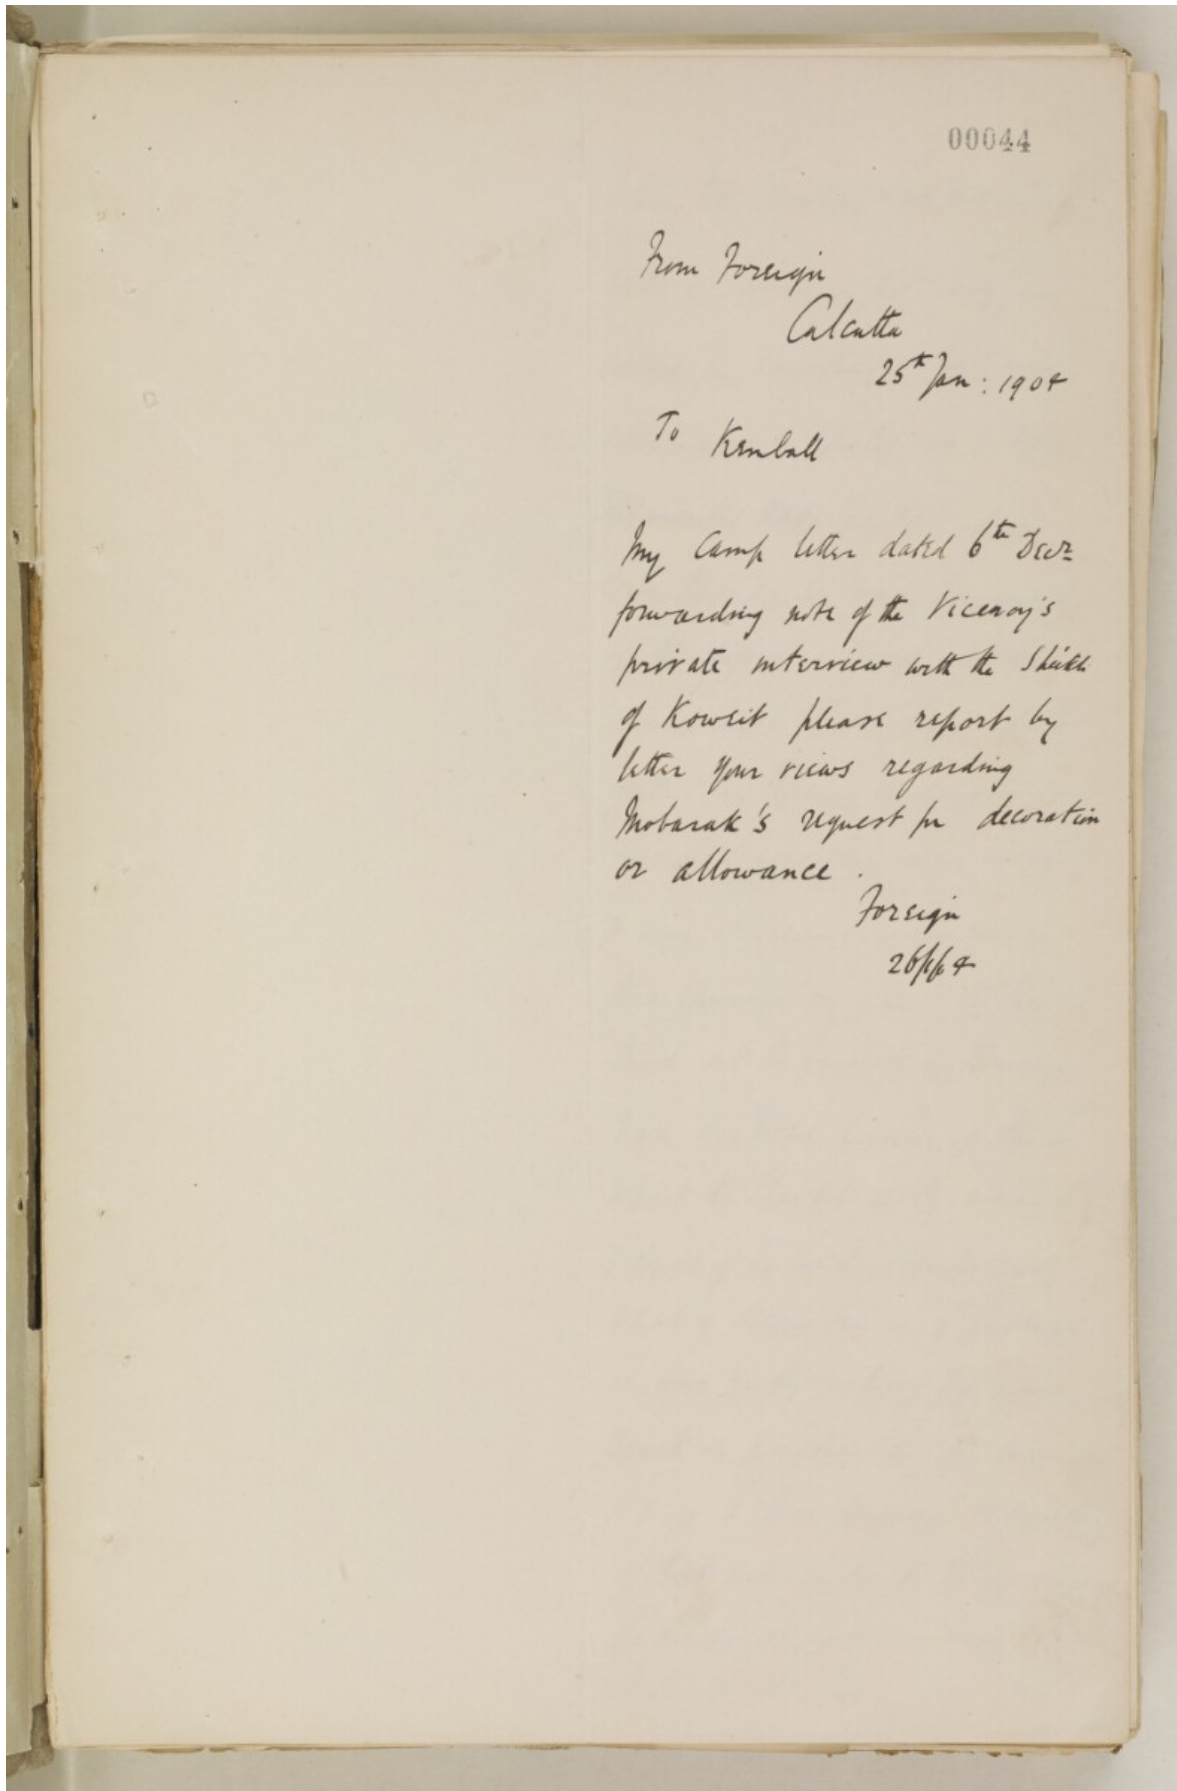 00044
From Foreign
Calcutta
25th Jan: 1904
To Kemball
My Camp letter dated 6th Decr
forwarding note of the Viceroy's
private interview with the Sheikh
of Koweit please report by
letter your views regarding
Mobarak's request for decoration
or allowance.
Foreign
26/1/04